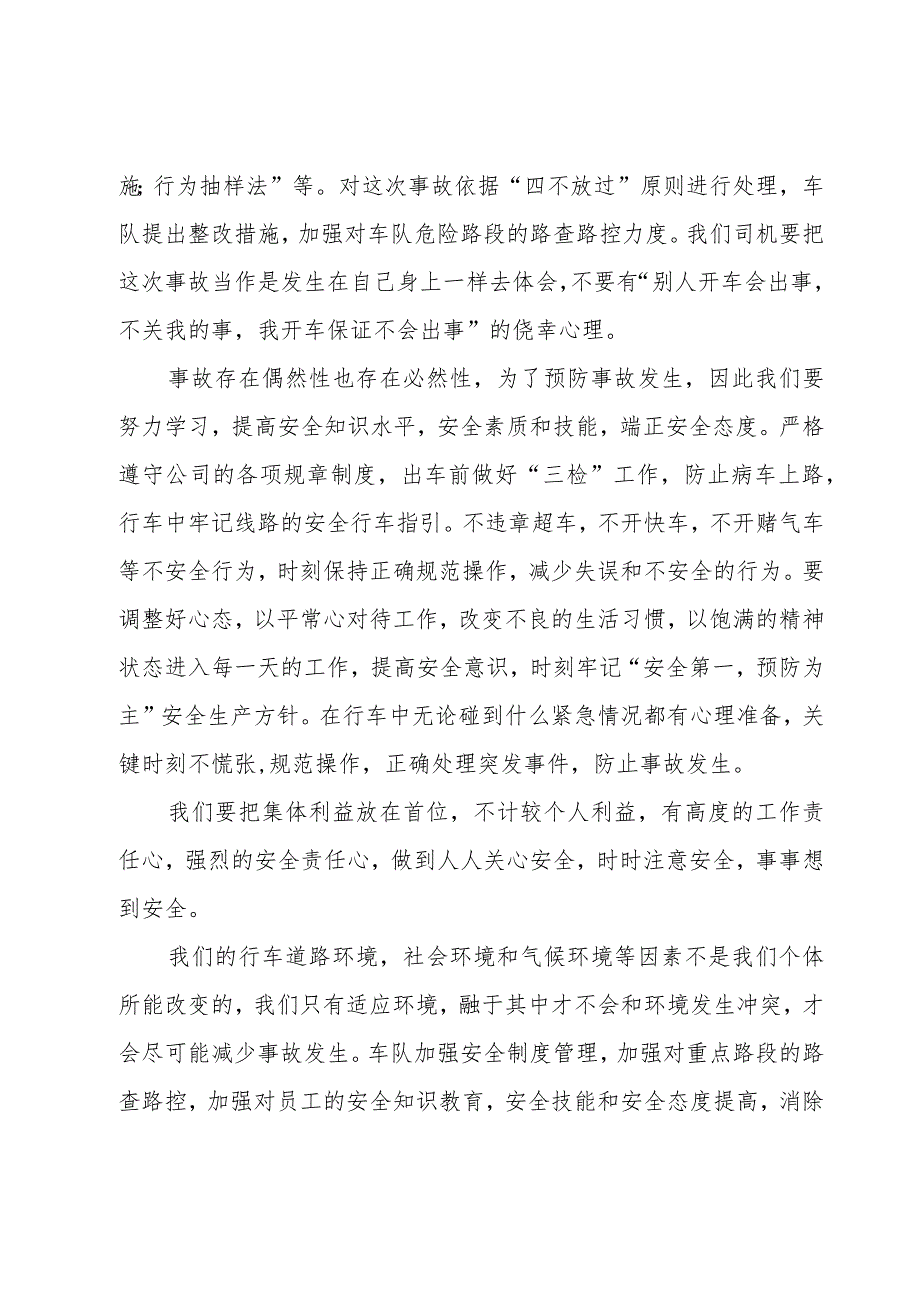 施；行为抽样法”等。对这次事故依据“四不放过”原则进行处理，车
队提出整改措施，加强对车队危险路段的路查路控力度。我们司机要把
这次事故当作是发生在自己身上一样去体会，不要有“别人开车会出事，
不关我的事，我开车保证不会出事”的侥幸心理。
事故存在偶然性也存在必然性，为了预防事故发生，因此我们要
努力学习，提高安全知识水平，安全素质和技能，端正安全态度。严格
遵守公司的各项规章制度，出车前做好“三检”工作，防止病车上路，
行车中牢记线路的安全行车指引。不违章超车，不开快车，不开赌气车
等不安全行为，时刻保持正确规范操作，减少失误和不安全的行为。要
调整好心态，以平常心对待工作，改变不良的生活习惯，以饱满的精神
状态进入每一天的工作，提高安全意识，时刻牢记“安全第一，预防为
主”安全生产方针。在行车中无论碰到什么紧急情况都有心理准备，关
键时刻不慌张,规范操作，正确处理突发事件，防止事故发生。
我们要把集体利益放在首位，不计较个人利益，有高度的工作责
任心，强烈的安全责任心，做到人人关心安全，时时注意安全，事事想
到安全。
我们的行车道路环境，社会环境和气候环境等因素不是我们个体
所能改变的，我们只有适应环境，融于其中才不会和环境发生冲突，才
会尽可能减少事故发生。车队加强安全制度管理，加强对重点路段的路
查路控，加强对员工的安全知识教育，安全技能和安全态度提高，消除